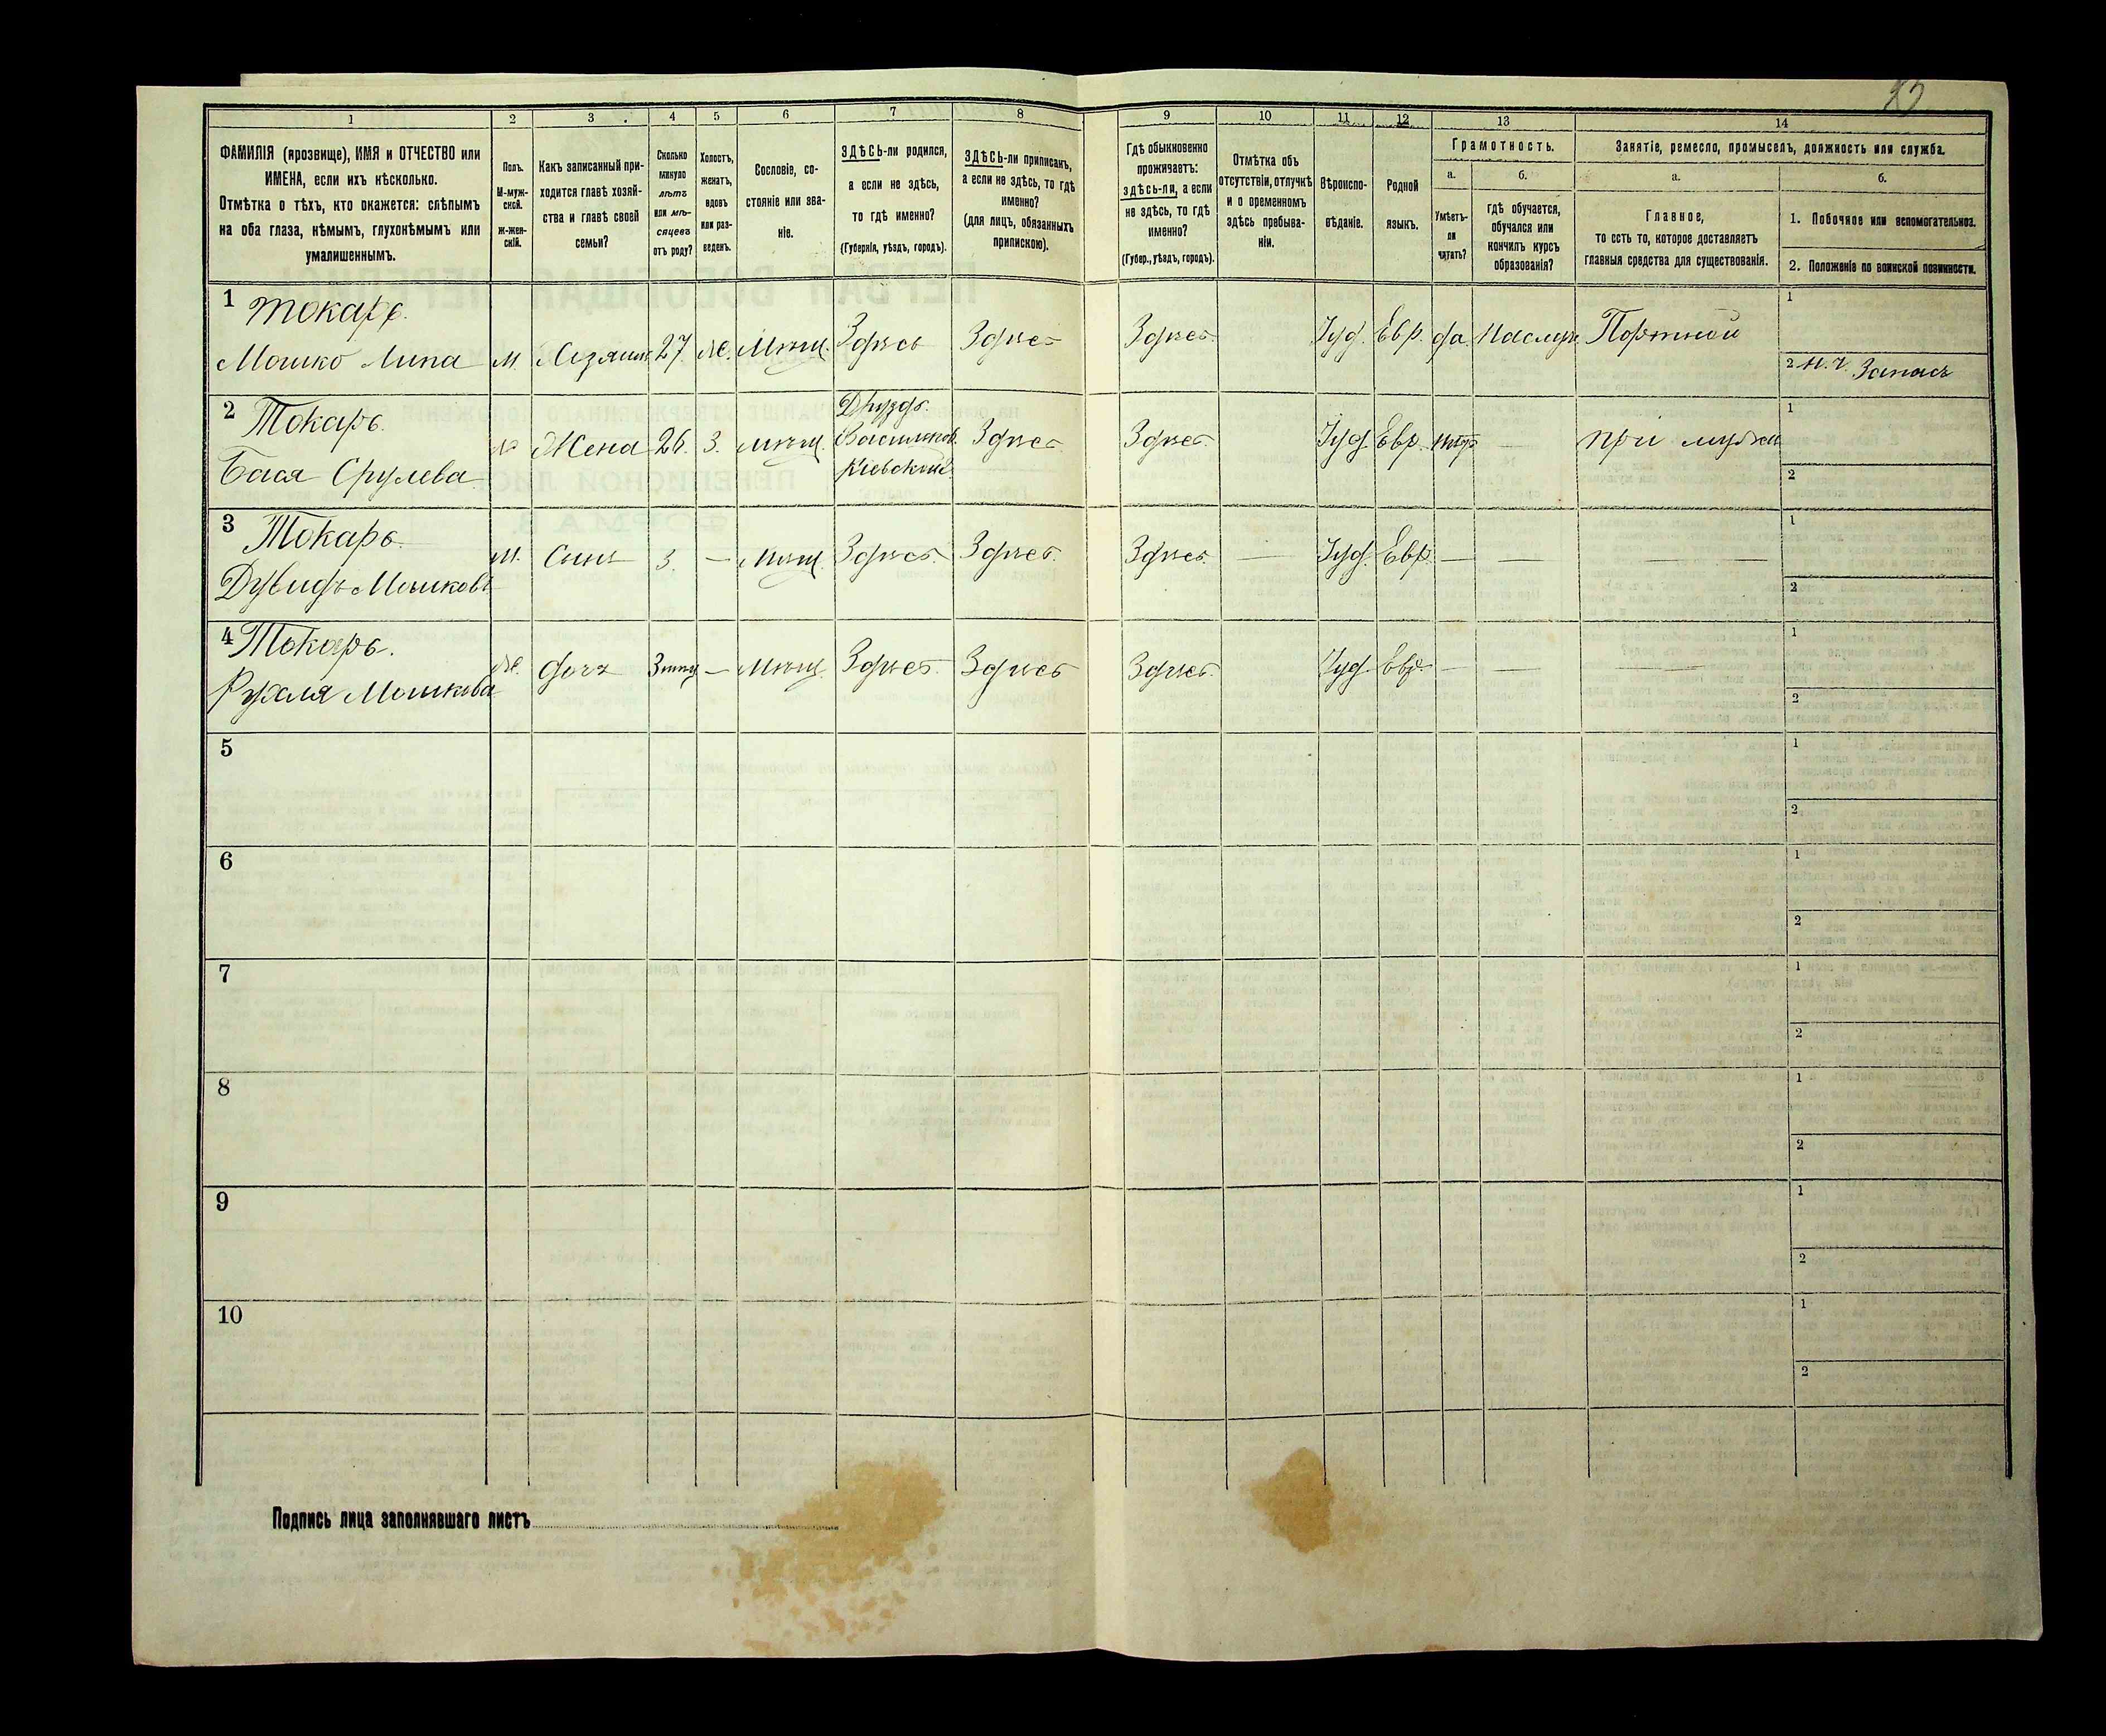 1
2
3
4
5
6
7
8
9
10
11
12
13
14
ФАМИЛІЯ (прозвище), ИМЯ и ОТЧЕСТВО или
ИМЕНА, если ихъ нѣсколько.
Отмѣтка о тѣхъ, кто окажется: слѣпымъ
на оба глаза, нѣмымъ, глухонѣмымъ или
умалишеннымъ.
Полъ.
М-муж-
ской.
ж-жен-
скій.
Какъ записанный при-
ходится главѣ хозяй-
ства и главѣ своей
семьи?
Сколько
минуло
лѣтъ
или мѣ-
сяцевъ
отъ роду?
Холостъ,
женатъ,
вдовъ
или раз-
веденъ.
Сословіе, со-
стояніе или зва-
ніе.
ЗДѢСЬ-ли родился,
а если не здѣсь,
то гдѣ именно?
(Губернія, уѣздъ, городъ).
ЗДѢСЬ-ли приписанъ,
а если не здѣсь, то гдѣ
именно?
(для лицъ, обязанныхъ
припискою).
Гдѣ обыкновенно
проживаетъ:
здѣсь-ли, а если
не здѣсь, то гдѣ
именно?
(Губер., уѣздъ, городъ).
Отмѣтка объ
отсутствіи, отлучкѣ
и о временномъ
здѣсь пребыва-
ніи.
Вѣроиспо-
вѣданіе.
Родной
языкъ.
Грамотность.
а.
б.
Умѣетъ-
ли
читать?
гдѣ обучается,
обучался или
кончилъ курсъ
образованія?
Занятіе, ремесло, промыселъ, должность или служба.
а.
б.
Главное,
то есть то, которое доставляетъ
главныя средства для существованія.
1. Побочное или вспомогательное.
2. Положеніе по воинской повинности.
1 Токарь.
Мошко Липа м. Хозяинъ 27. Ж. Мѣщ. Здѣсь Здѣсь Здѣсь. Іуд. Евр. да. Портной
1
2 Н. Ч. Запасъ
2 Токарь.
Бася Срулева ж Жена 26. З. мѣщ. Васильков. Кіевской Здѣсь Здѣсь. Іуд. Евр. — при мужѣ
1
2
3 Токарь.
Дувидъ Мошковъ м. Сынъ 3. — Мѣщ. Здѣсь. Здѣсь. Здѣсь. — Іуд. Евр. — — —
1
2
4 Токарь.
Рухля Мошкова ж. дочь — Мѣщ. Здѣсь. Здѣсь Здѣсь. Іуд. Евр. — — —
1
2
5
1
2
6
1
2
7
1
2
8
1
2
9
1
2
10
1
2
Подпись лица заполнявшаго листъ